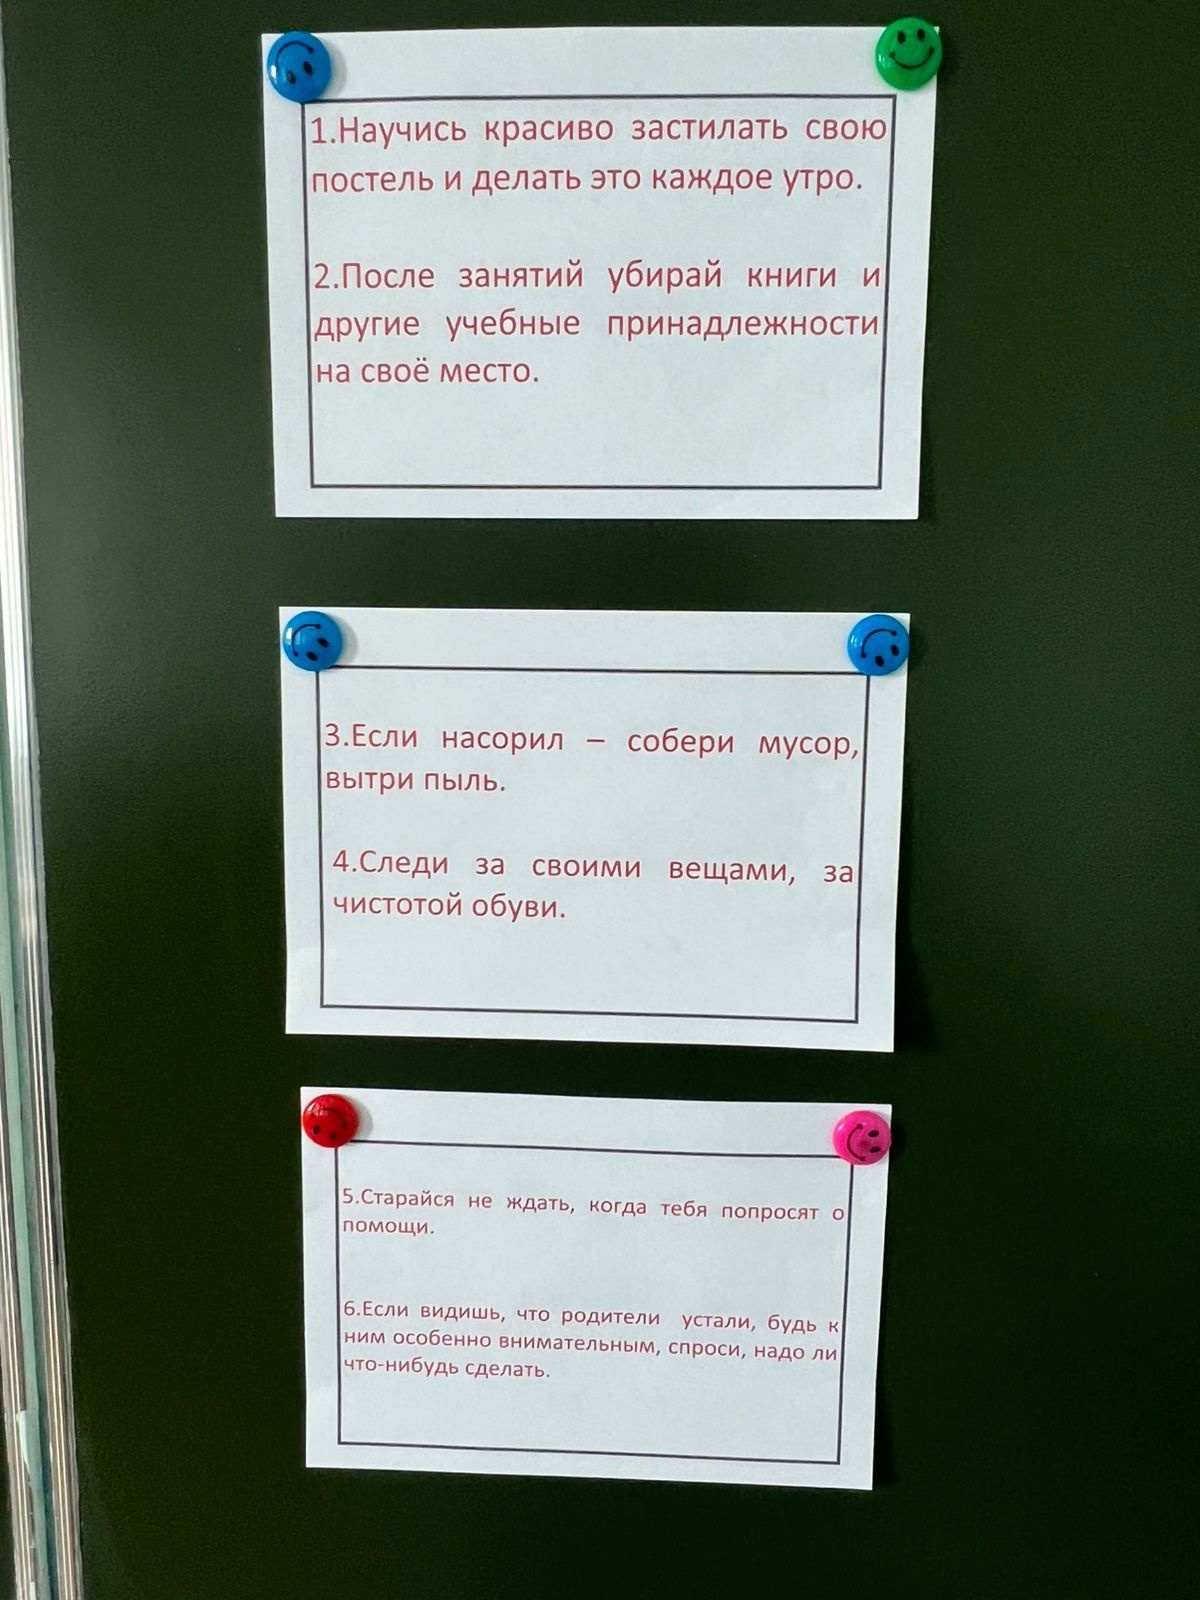 1.Научись красиво застилать свою
постель и делать это каждое утро.
2.После занятий убирай книги и
другие учебные принадлежности
на своё место.
3.Если насорил – собери мусор,
вытри пыль.
4.Следи за своими вещами, за
чистотой обуви.
5.Старайся не ждать, когда тебя попросят о
помощи.
6.Если видишь, что родители устали, будь к
ним особенно внимательным, спроси, надо ли
что-нибудь сделать.